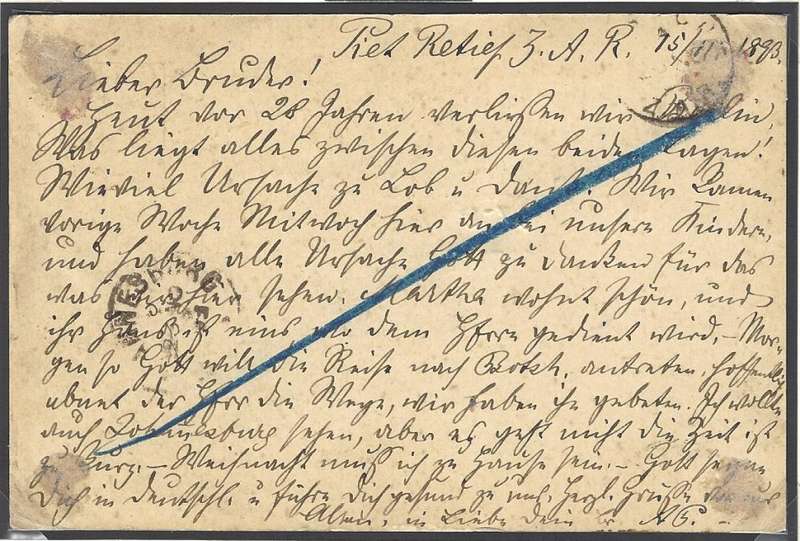 Piet Retief Z. A. R. 15/11 1893.
Lieber Bruder!
Heut vor 28 Jahren verließen wir Berlin,
Was liegt alles zwischen diesen beiden Tagen!
Wieviel Ursache zu Lob u Dank. Wir kamen
vorige Woche Mittwoch hier an bei unsern Kindern,
und haben alle Ursache Gott zu danken für das
was wir hier sehen. Martha wohnt schön, und
ihr Haus ist eins wo dem Herrn gedient wird, – Mor-
gen so Gott will die Reise nach Botsh. antreten, hoffentlich
ebnet der Herr die Wege, wir haben ihn gebeten. Ich wollte
auch sehen, aber es geht nicht die Zeit ist
zu kurz. – Weihnacht muß ich zu Hause sein. – Gott segne
Dich in Deutschl. u führe Dich gesund zu uns. Herzl. Grüße
in Liebe Dein Br.